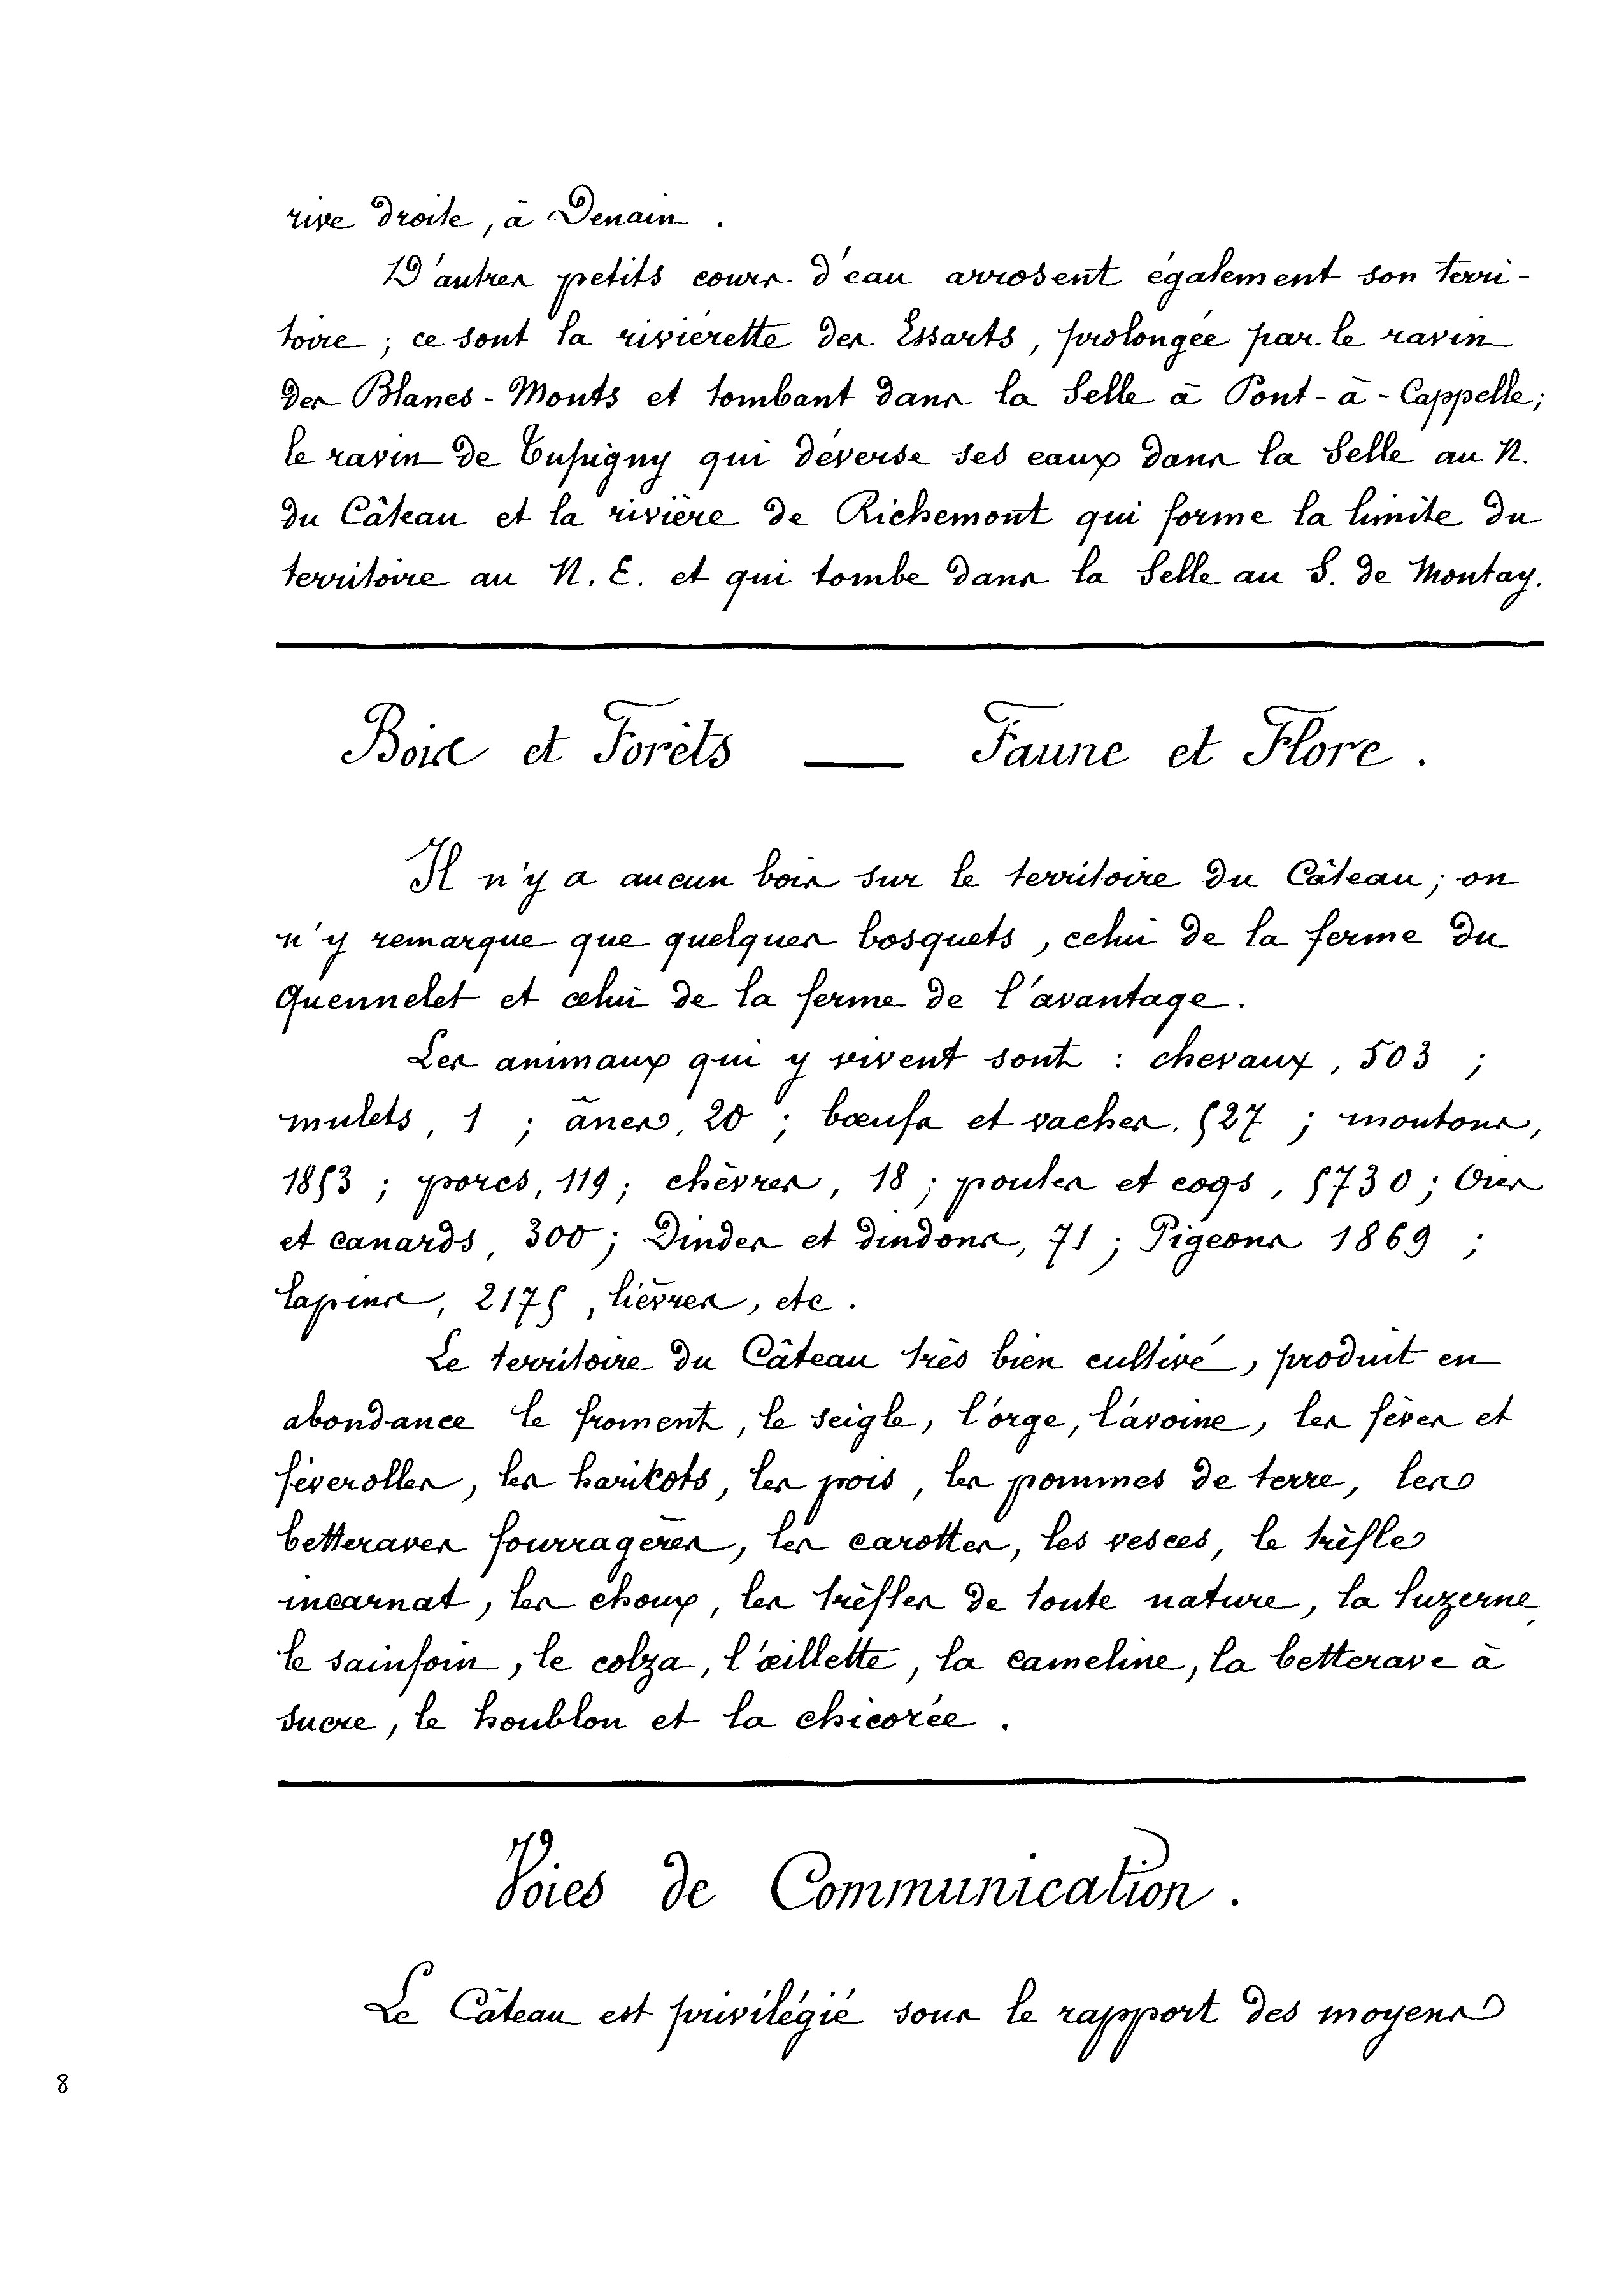 rive droite, à Denain.
D'autres petits cours d'eau arrosent également son terri-
toire ; ce sont la rivièrette des Essarts, prolongée par le ravin
des Blancs-Monts et tombant dans la Selle à Pont-à-Cappelle;
le ravin de Tupigny qui déverse ses eaux dans la Selle au N.
du Câteau et la rivière de Richemont qui forme la limite du
territoire au N. E. et qui tombe dans la Selle au S. de Montay.
Bois et Forêts — Faune et Flore.
Il n'y a aucun bois sur le territoire du Câteau; on
n'y remarque que quelques bosquets, celui de la ferme du
Quennelet et celui de la ferme de l'avantage.
Les animaux qui y vivent sont : chevaux, 503 ;
mulets, 1 ; ânes, 20 ; bœufs et vaches, 527 ; moutons,
1853 ; porcs, 119 ; chèvres, 18 ; poules et coqs, 5730 ; Oies
et canards, 300 ; Dindes et dindons, 71 ; Pigeons 1869 ;
lapins, 2175, lièvres, etc.
Le territoire du Câteau très bien cultivé, produit en
abondance le froment, le seigle, l'orge, l'avoine, les fèves et
féverolles, les haricots, les pois, les pommes de terre, les
betteraves fourragères, les carottes, les vesces, le trèfle
incarnat, les choux, les trèfles de toute nature, la luzerne,
le sainfoin, le colza, l'œillette, la cameline, la betterave à
sucre, le houblon et la chicorée.
Voies de Communication.
Le Câteau est privilégié sous le rapport des moyens
8